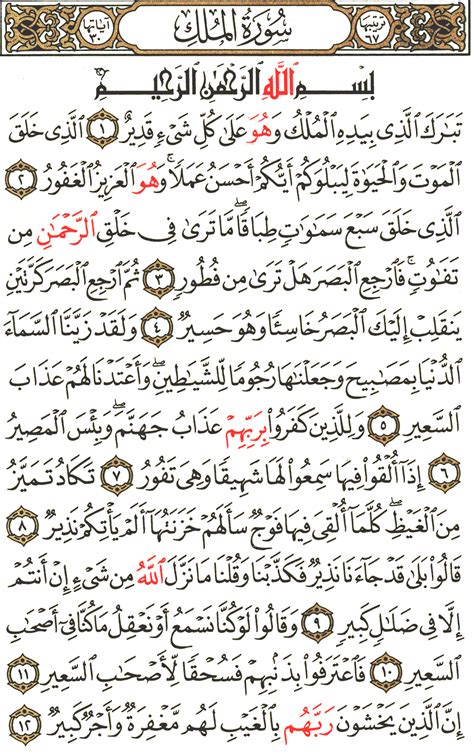 ترتيبها ٦٧ سُورَةُ المُلكِ آياتها ٣٠
بِسْمِ اللَّهِ الرَّحْمَٰنِ الرَّحِيمِ
تَبَارَكَ الَّذِي بِيَدِهِ الْمُلْكُ وَهُوَ عَلَىٰ كُلِّ شَيْءٍ قَدِيرٌ ١ الَّذِي خَلَقَ
الْمَوْتَ وَالْحَيَوٰةَ لِيَبْلُوَكُمْ أَيُّكُمْ أَحْسَنُ عَمَلًا ۚ وَهُوَ الْعَزِيزُ الْغَفُورُ ٢
الَّذِي خَلَقَ سَبْعَ سَمَٰوَٰتٍ طِبَاقًا ۖ مَّا تَرَىٰ فِي خَلْقِ الرَّحْمَٰنِ مِن
تَفَٰوُتٍ ۖ فَارْجِعِ الْبَصَرَ هَلْ تَرَىٰ مِن فُطُورٍ ٣ ثُمَّ ارْجِعِ الْبَصَرَ كَرَّتَيْنِ
يَنقَلِبْ إِلَيْكَ الْبَصَرُ خَاسِئًا وَهُوَ حَسِيرٌ ٤ وَلَقَدْ زَيَّنَّا السَّمَاءَ
الدُّنْيَا بِمَصَٰبِيحَ وَجَعَلْنَٰهَا رُجُومًا لِّلشَّيَٰطِينِ ۖ وَأَعْتَدْنَا لَهُمْ عَذَابَ
السَّعِيرِ ٥ وَلِلَّذِينَ كَفَرُوا بِرَبِّهِمْ عَذَابُ جَهَنَّمَ ۖ وَبِئْسَ الْمَصِيرُ
٦ إِذَا أُلْقُوا فِيهَا سَمِعُوا لَهَا شَهِيقًا وَهِيَ تَفُورُ ٧ تَكَادُ تَمَيَّزُ
مِنَ الْغَيْظِ ۖ كُلَّمَا أُلْقِيَ فِيهَا فَوْجٌ سَأَلَهُمْ خَزَنَتُهَا أَلَمْ يَأْتِكُمْ نَذِيرٌ ٨
قَالُوا بَلَىٰ قَدْ جَاءَنَا نَذِيرٌ فَكَذَّبْنَا وَقُلْنَا مَا نَزَّلَ اللَّهُ مِن شَيْءٍ إِنْ أَنتُمْ
إِلَّا فِي ضَلَٰلٍ كَبِيرٍ ٩ وَقَالُوا لَوْ كُنَّا نَسْمَعُ أَوْ نَعْقِلُ مَا كُنَّا فِي أَصْحَٰبِ
السَّعِيرِ ١٠ فَاعْتَرَفُوا بِذَنبِهِمْ فَسُحْقًا لِّأَصْحَٰبِ السَّعِيرِ ١١
إِنَّ الَّذِينَ يَخْشَوْنَ رَبَّهُم بِالْغَيْبِ لَهُم مَّغْفِرَةٌ وَأَجْرٌ كَبِيرٌ ١٢